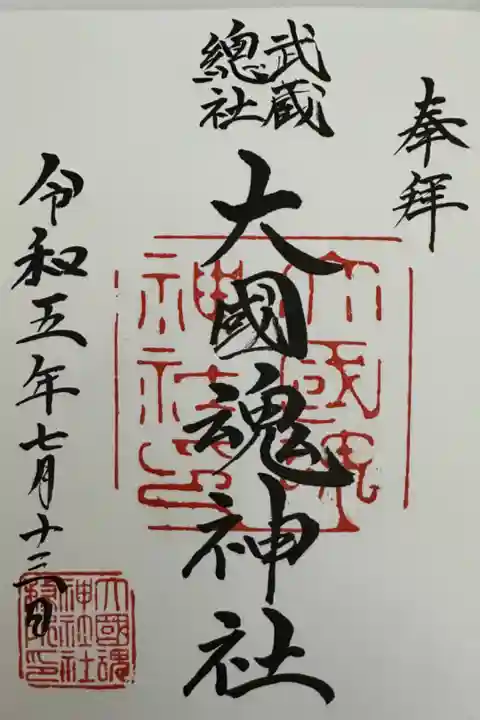 奉拜
武蔵
總社
大國魂神社
令和五年七月十三日
大國魂
神社印
大國魂
神社社
務所印